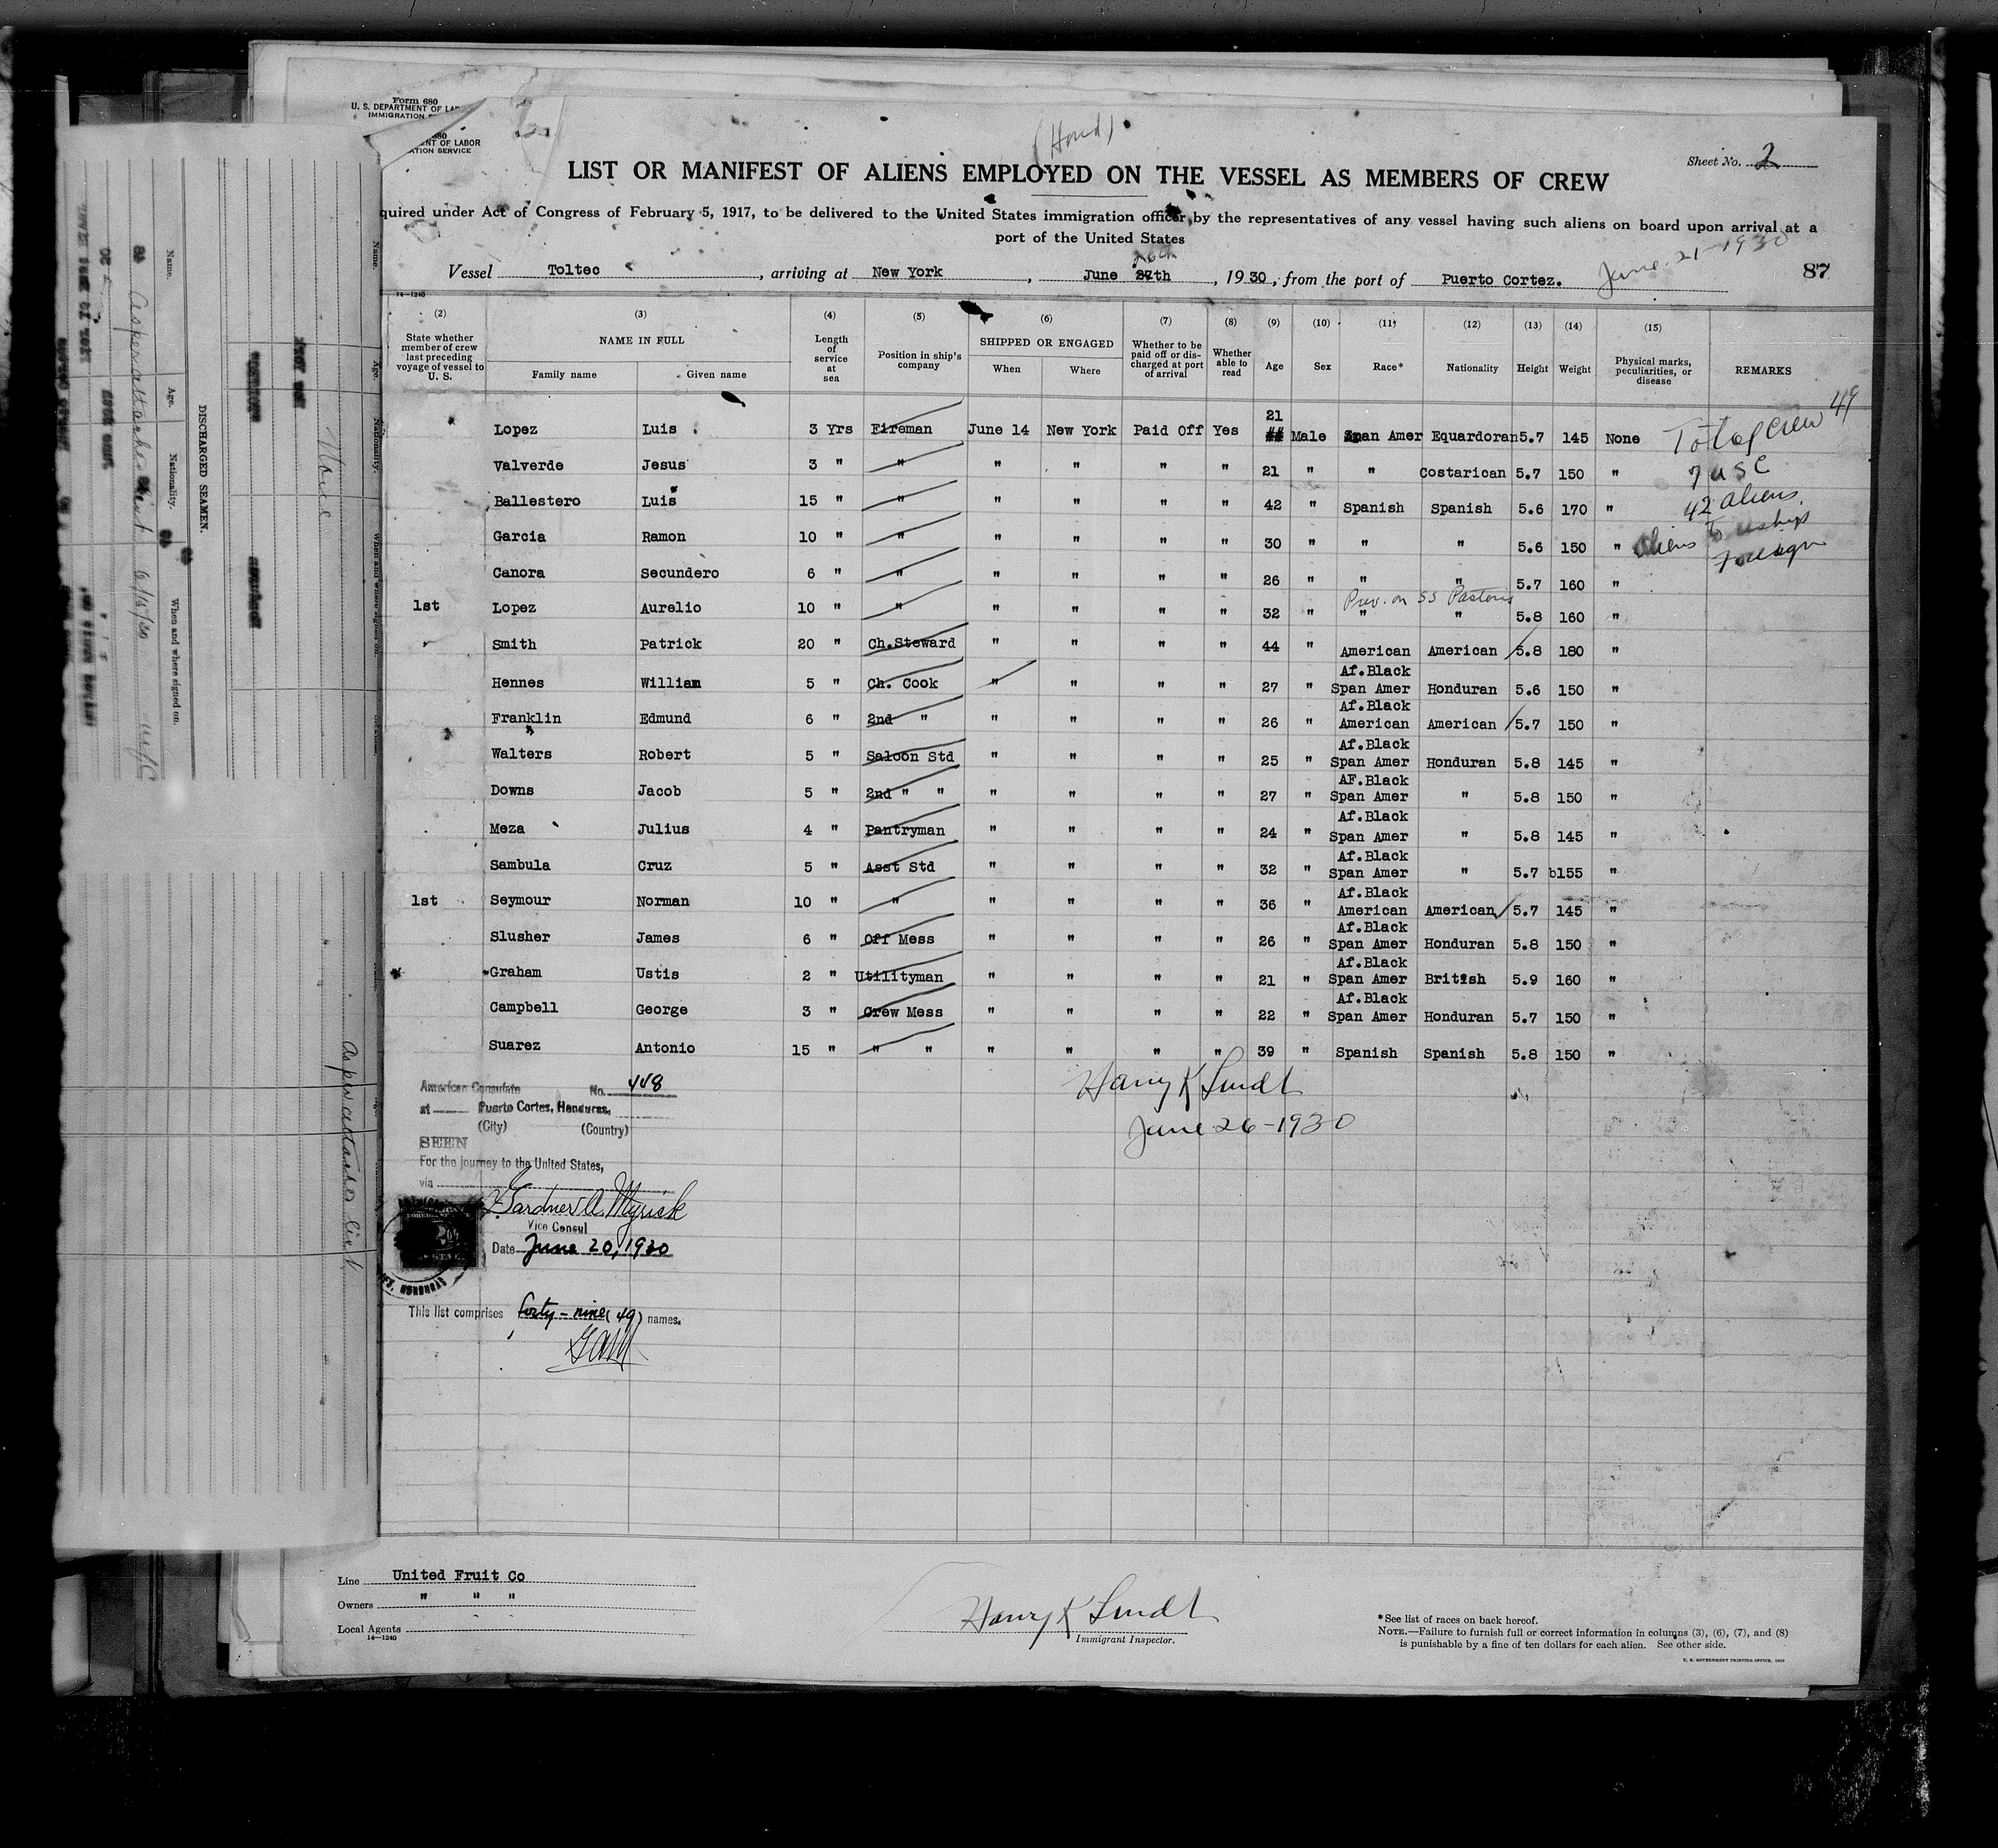 Form 680
U. S. DEPARTMENT OF
IMMIGRATION
680
ENT OF LABOR
ATION SERVICE
(Hond)
Sheet No. 2
LIST OR MANIFEST OF ALIENS EMPLOYED ON THE VESSEL AS MEMBERS OF CREW
quired under Act of Congress of February 5, 1917, to be delivered to the United States immigration officer by the representatives of any vessel having such aliens on board upon arrival at a
port of the United States
26th
Vessel Toltec, arriving at New York, June 27th, 1930, from the port of Puerto Cortez. June 21-1930 87
14-1240
(2) (3) (4) (5) (6) (7) (8) (9) (10) (11) (12) (13) (14) (15)
State whether member of crew last preceding voyage of vessel to U. S. NAME IN FULL Family name Given name Length of service at sea Position in ship's company SHIPPED OR ENGAGED When Where Whether to be paid off or discharged at port of arrival Whether able to read Age Sex Race* Nationality Height Weight Physical marks, peculiarities, or disease REMARKS
Lopez Luis 3 Yrs Fireman June 14 New York Paid Off Yes 21 Male Span Amer Equardoran 5.7 145 None Total Crew 49
Valverde Jesus 3 " " " " " " 21 " " Costarican 5.7 150 " 7 USC
Ballestero Luis 15 " " " " " " 42 " Spanish Spanish 5.6 170 " 42 aliens
Garcia Ramon 10 " " " " " " 30 " " " 5.6 150 " Aliens to reship
Foreign
Canora Secundero 6 " " " " " " 26 " " " 5.7 160 "
Prev. on SS Pastores
1st Lopez Aurelio 10 " " " " " " 32 " " " 5.8 160 "
Smith Patrick 20 " Ch.Steward " " " " 44 " American American 5.8 180 "
Af.Black
Hennes William 5 " Ch. Cook " " " " 27 " Span Amer Honduran 5.6 150 "
Af.Black
Franklin Edmund 6 " 2nd " " " " " 26 " American American 5.7 150 "
Af.Black
Walters Robert 5 " Saloon Std " " " " 25 " Span Amer Honduran 5.8 145 "
AF.Black
Downs Jacob 5 " 2nd " " " " " " 27 " Span Amer " 5.8 150 "
Af.Black
Meza Julius 4 " Pantryman " " " " 24 " Span Amer " 5.8 145 "
Af.Black
Sambula Cruz 5 " Asst Std " " " " 32 " Span Amer " 5.7 b155 "
Af.Black
1st Seymour Norman 10 " " " " " " 36 " American American 5.7 145 "
Af.Black
Slusher James 6 " Off Mess " " " " 26 " Span Amer Honduran 5.8 150 "
Af.Black
Graham Ustis 2 " Utilityman " " " " 21 " Span Amer British 5.9 160 "
Af.Black
Campbell George 3 " Crew Mess " " " " 22 " Span Amer Honduran 5.7 150 "
Suarez Antonio 15 " " " " " " " 39 " Spanish Spanish 5.8 150 "
Harry K Lindt
June 26-1930
American Consulate No. 448
at Puerto Cortes, Honduras,
(City) (Country)
SEEN
For the journey to the United States,
via
Gardner A. Myrick
Vice Consul
Date June 20, 1930
This list comprises forty-nine (49) names.
GAM
Line United Fruit Co
Owners " " "
Local Agents
14-1240
Harry K Lindt
Immigrant Inspector.
*See list of races on back hereof.
NOTE.—Failure to furnish full or correct information in columns (3), (6), (7), and (8)
is punishable by a fine of ten dollars for each alien. See other side.
U. S. GOVERNMENT PRINTING OFFICE, 1929
DISCHARGED SEAMEN.
Name. Age. Nationality. When and where signed on.
6/14/30
None
Name. Age. Nationality. When and where signed on.